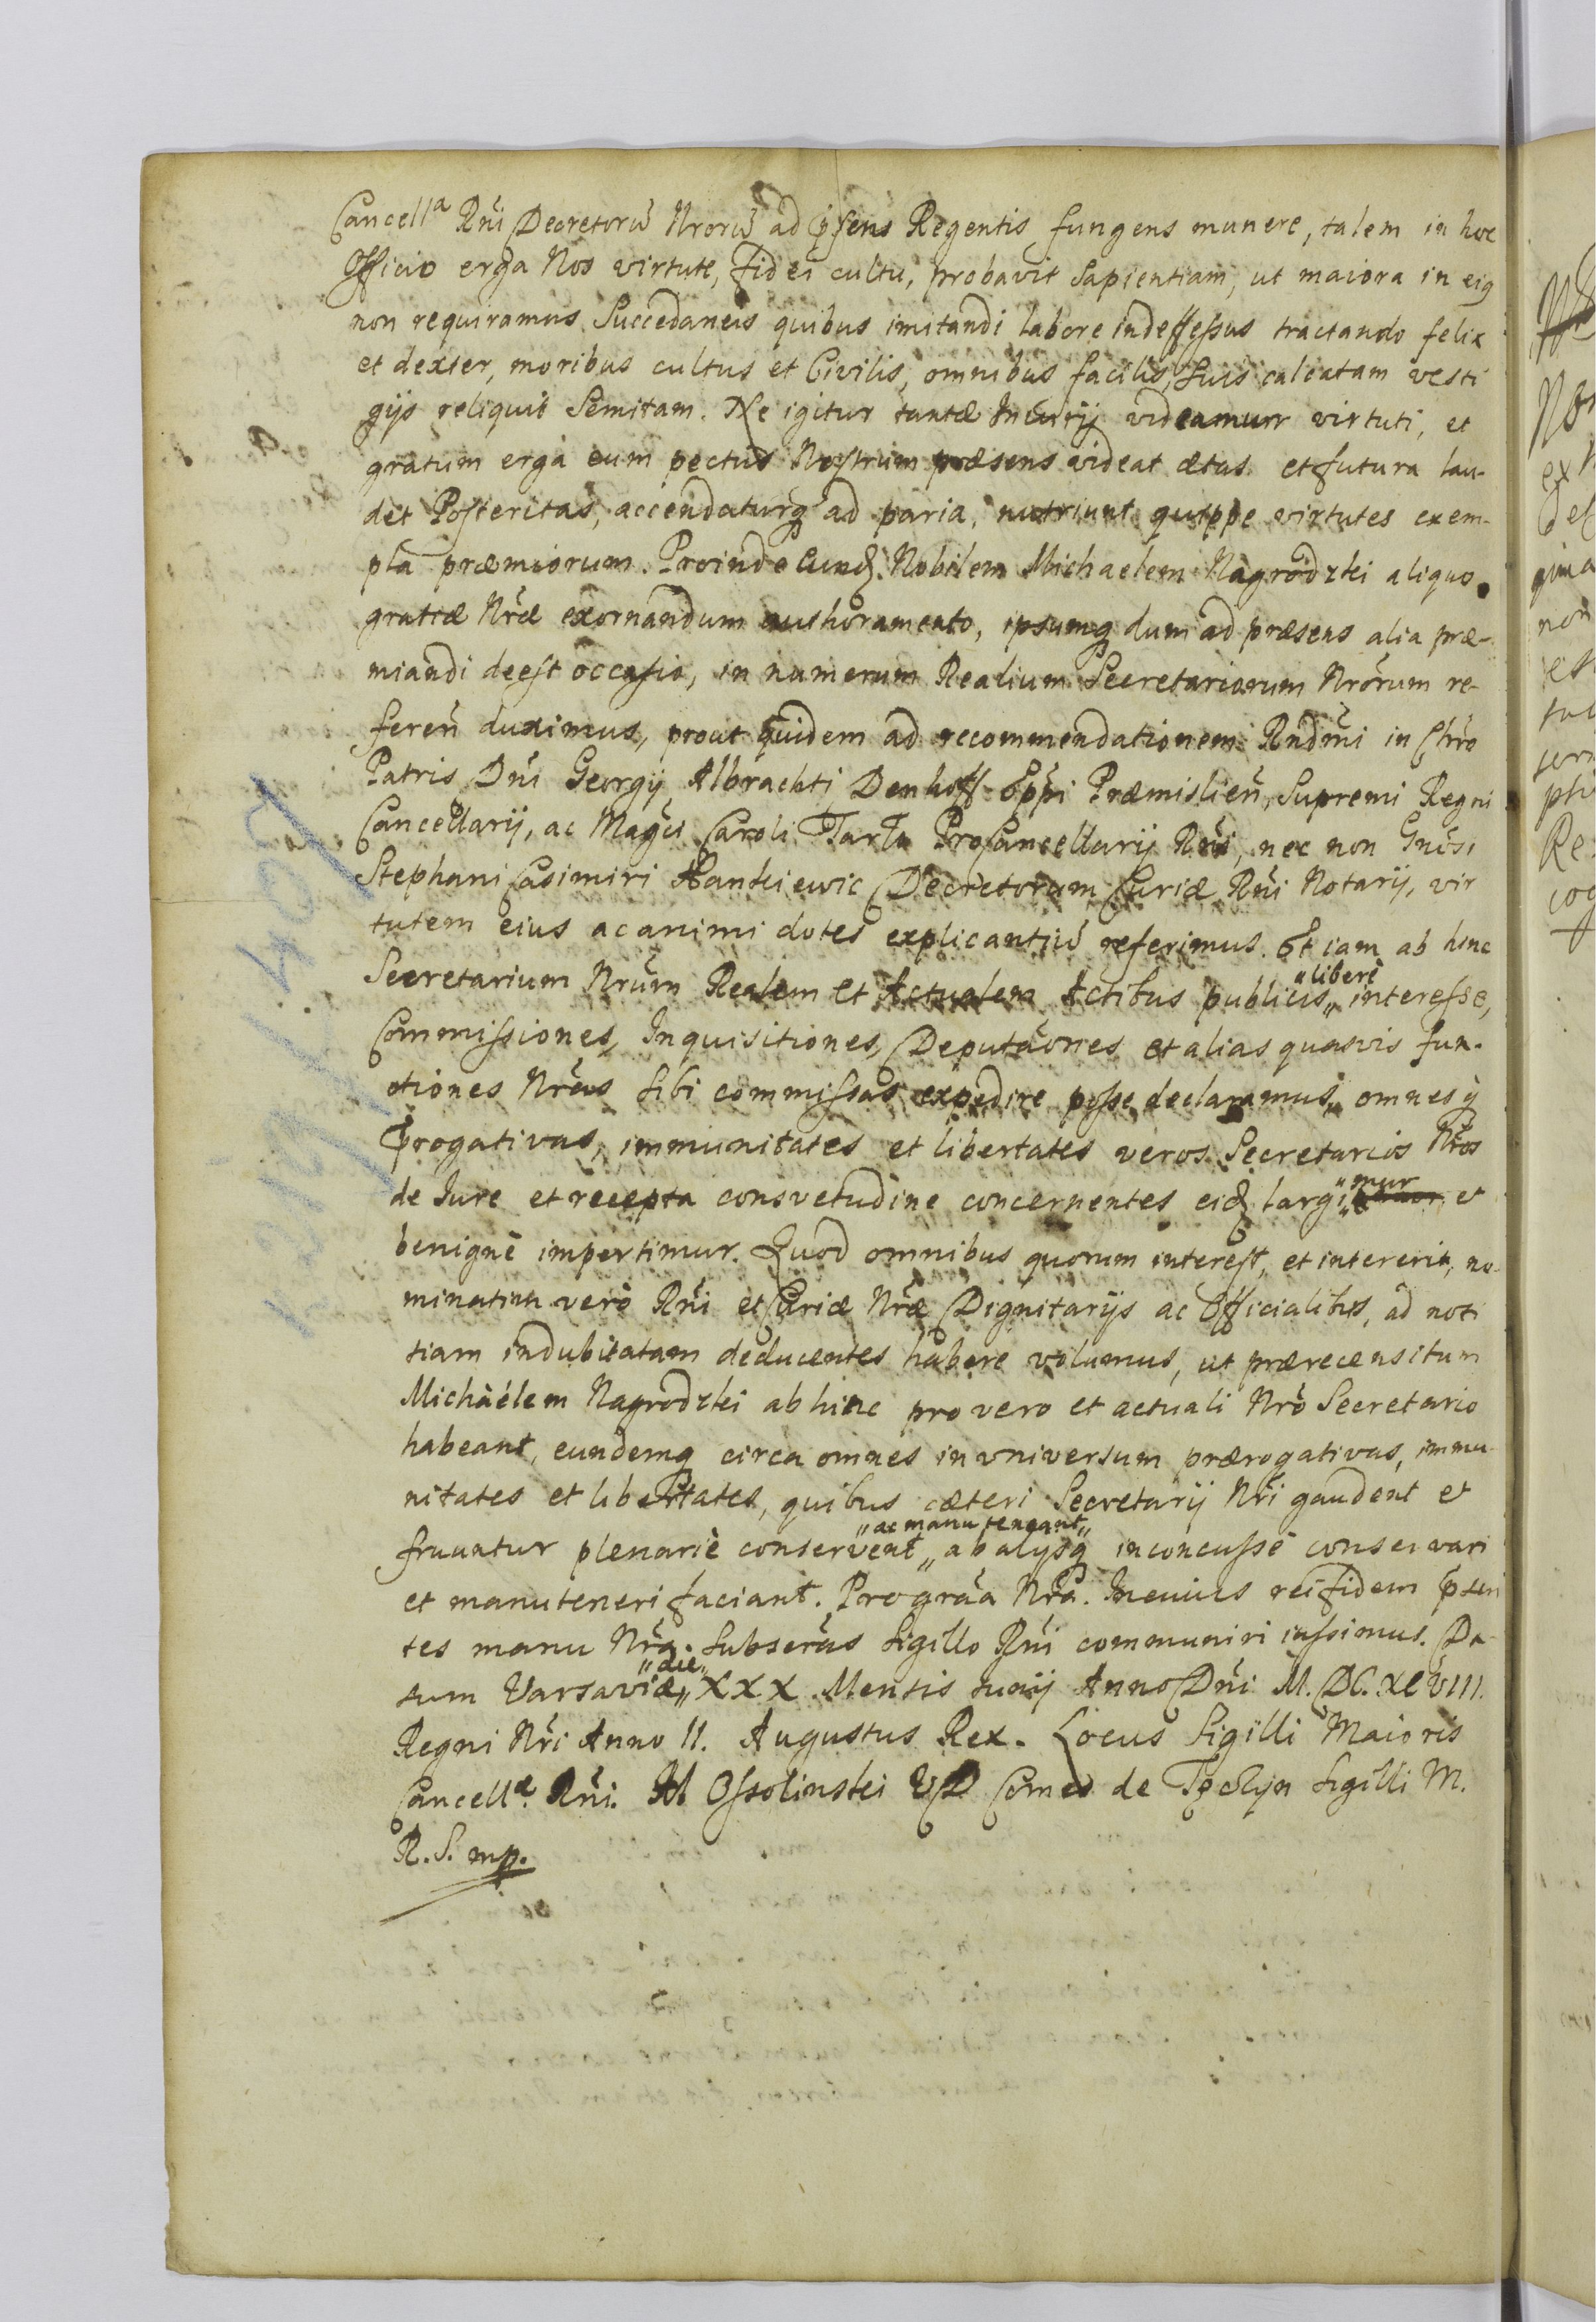 Cancellª Rñi Decretorũ Nrorũ ad p̃sens Regentis fungens munere, talem in hoc
Officio erga Nos virtute, fidei cultu, probavit sapientiam, ut maiora in eiq
non requiramus Succedaneis quibus imitandi labore indeffessus tractando felix
et dexter, moribus cultus et Civilis, omnibus facilis, suis calcatam vesti
gijs reliquit Semitam. Ne igitur tantæ videamurr virtuti, et
gratum ergà eum pectus Nostrum præsens videat ætas et futura lau-
det Posteritas, accendaturq ad paria, nutriunt quippe virtutes exem-
pla præmiorum. Proinde Eund. Nobilem Michaelem Nagrodzki aliquo
gratiæ Nræ exornandum authoramento, ipsumq dum ad præsens alia præ-
miandi deest occasio, in numerum Realium Secretariorum Nrõrum re-
feren̄ duximus, prout quidem ad recommendationem Rndm̃i in Chr̃o
Patris Dñi Georgij Albrachti Denhoff Epp̃i Præmislien̄, Supremi Regni
Cancellarij, ac Magci Caroli Tarło ProCancellarij Rñi, nec non Gnõsi
Stephani Casimiri Hankiewic Decretorum Curiæ Rñi Notarij, vir
tutem eius ac animi dotes explicantiũ referimus. Et iam ab hinc
Secretarium Nrũm Realem et Actualem Actibus publicis „liberè„ interesse,
Commissiones, Inquisitiones, Deputãones et alias quasvis fun-
ctiones Nrãs sibi commissas expedire posse declaramus, omnesq̃
p̃rogativas, immunitates et libertates veros Secretarios Nros
de Iure et recepta consvetudine concernentes eid largi„mur„ et
benignè impertimur. Quod omnibus quorum interest, et intererit, no-
minatim verò Rñi et Curiæ Nræ Dignitarijs ac Officialibus, ad noti
tiam indubitatam deducentes habere volumus, ut prærecensitum
Michàélem Nagrodzki ab hinc pro vero et actuali Nrõ Secretario
habeant, eundemq circa omnes in vniversum prærogativas, immu-
nitates et libertates, quibus cæteri Secretarij Nri gaudent et
fruuntur plenariè conservent „ac manuteneant„ ab alijsq inconcussè conservari
et manuteneri faciant. Pro grãa Nrã. In cuius rei fidem p̃sen
tes manu Nrã. Subscrãs Sigillo Rñi communiri iussimus. Da-
tum Varsaviæ „die„ XXX. Mensis Iunij Anno Dñi M. DC. XCVIII.
Regni Nri Anno II. Augustus Rex. Locus Sigilli Maioris
Cancellæ. Rñi. Ossolinski Comes de Tęczyn Sigilli M.
R. S. mp.